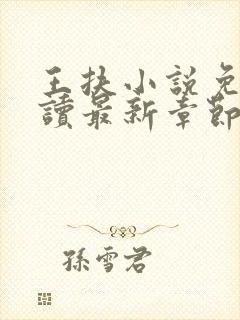 王扶小說免
讀最新章節
孫雪君